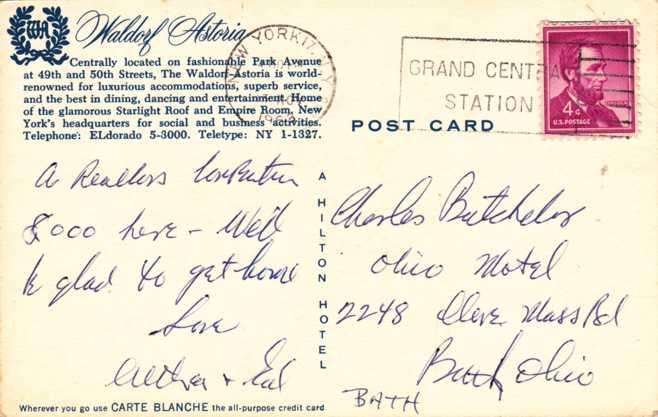 WA
Waldorf Astoria
Centrally located on fashionable Park Avenue
at 49th and 50th Streets, The Waldorf-Astoria is world-
renowned for luxurious accommodations, superb service,
and the best in dining, dancing and entertainment. Home
of the glamorous Starlight Roof and Empire Room. New
York's headquarters for social and business activities.
Telephone: ELdorado 5-3000. Teletype: NY 1-1327.
NEW YORK 17, N.Y.
GRAND CENTRA
STATION
4¢
U.S. POSTAGE
POST CARD
A Realtors Convention
8000 here - Will
be glad to get home
Love
+ Ed
A HILTON HOTEL
Charles Batchelor
Ohio Motel
2248 Cleve Mass Rd
Bath Ohio
BATH
Wherever you go use CARTE BLANCHE the all-purpose credit card